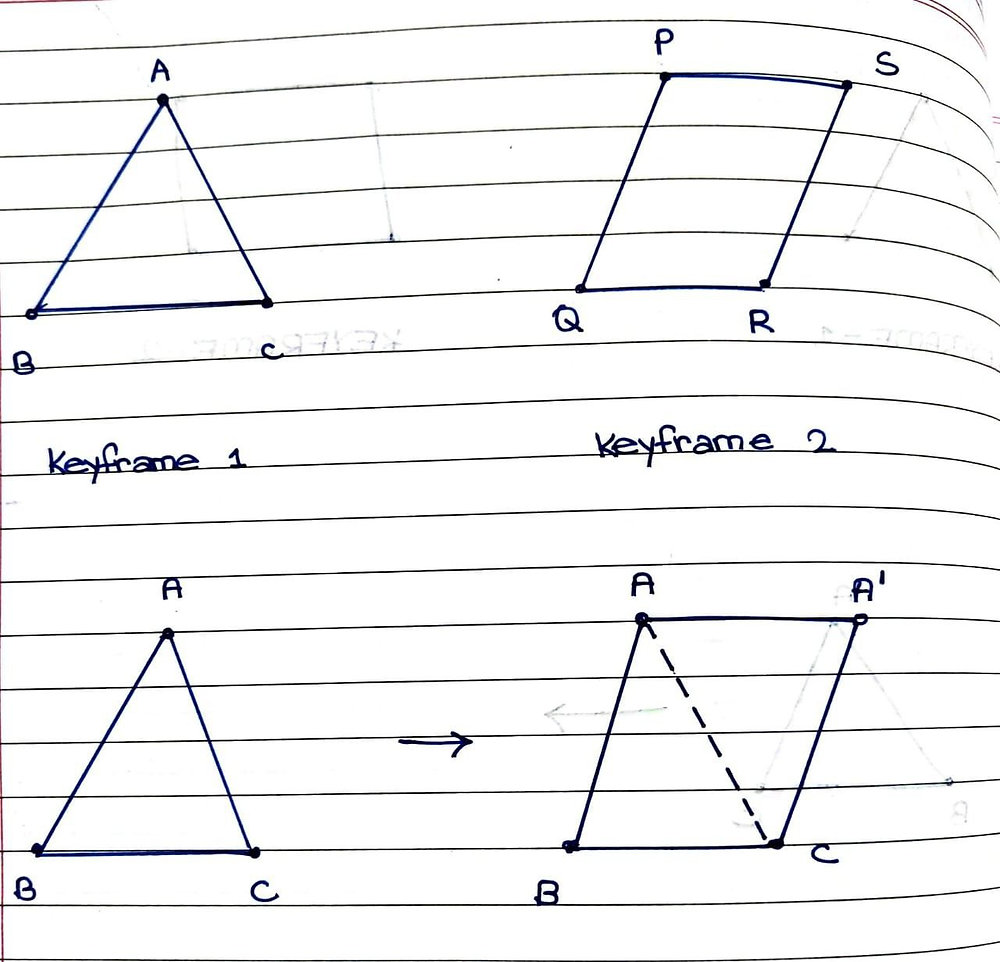 A
P
S
B
C
Q
R
Keyframe 1
Keyframe 2
A
A
A'
B
C
B
C